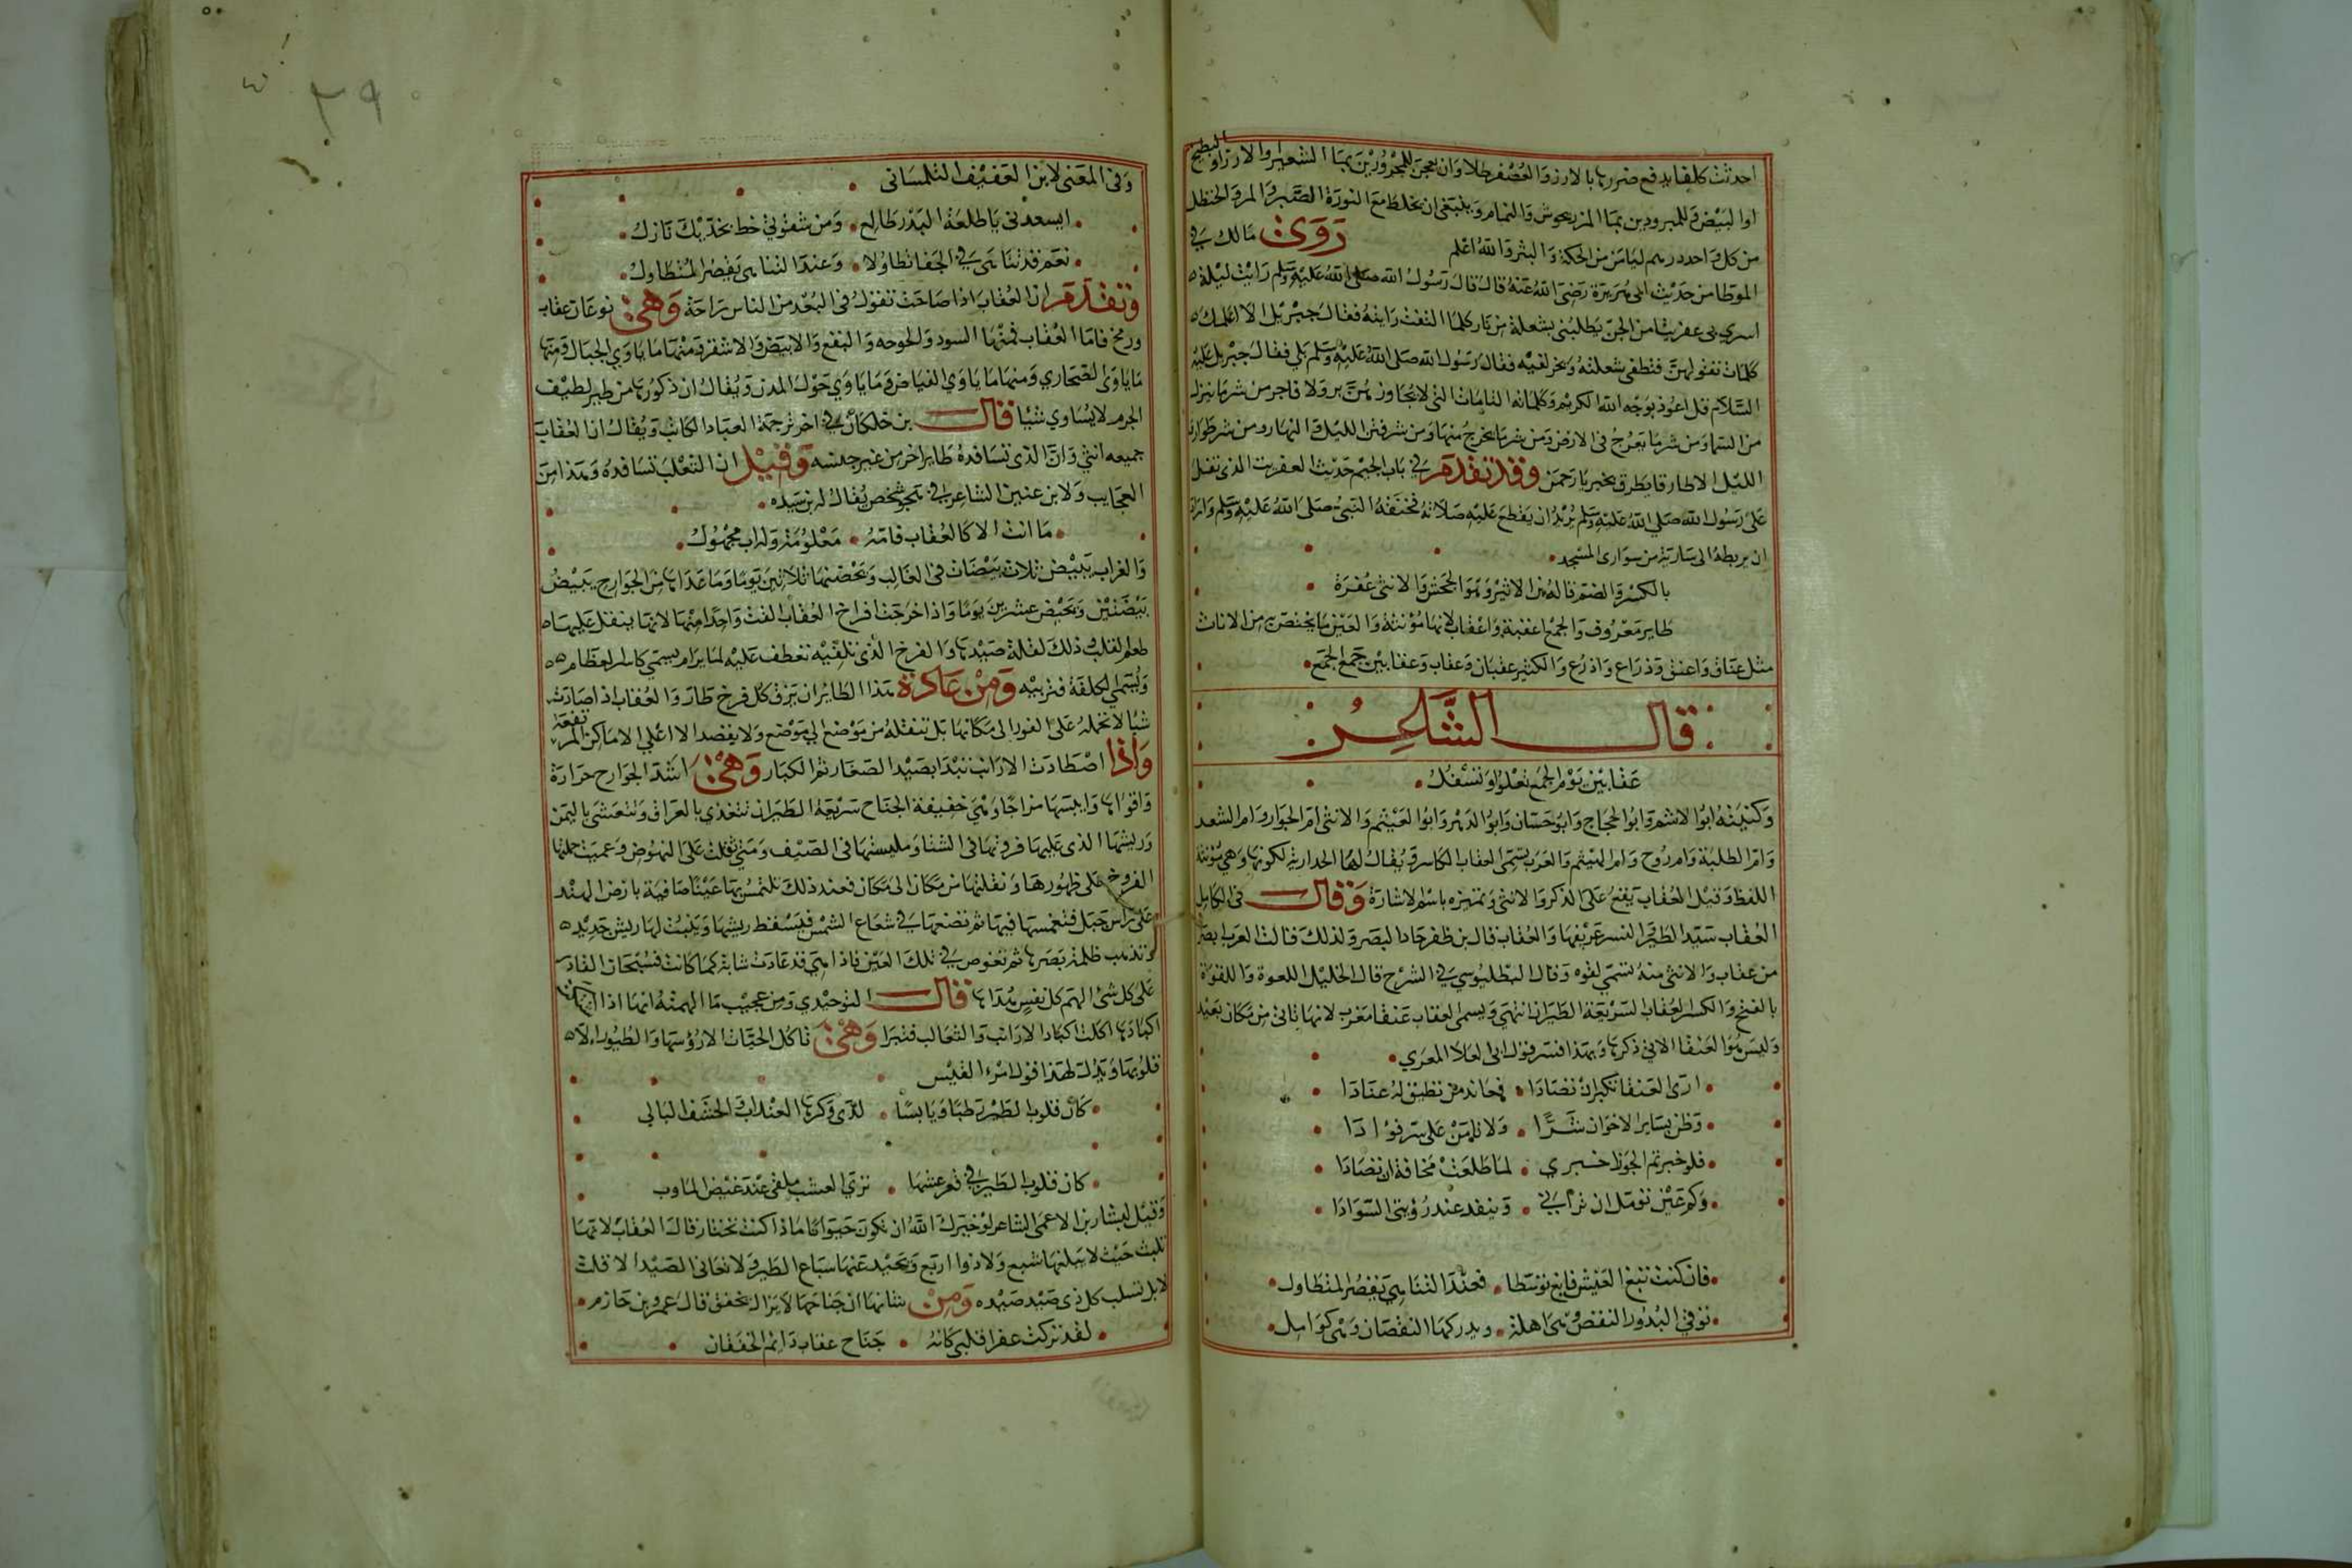 احدثت كلفا يدفع ضررها بالارز والعصفر طلا وان يعجن للمحرورين بماا الشعير والارز او البطيخ
او البيض وللمبرودين بماا المرزيحوش والنمام وينبغى ان يخلط مع النورة الصبر والمر والحنظل
من كل واحد درهم ليامن من الحكة والبثر والله اعلم روى مالك فى
الموطا من حديث ابى هريرة رضى الله عنه قال قال رسول الله صلى الله عليه وسلم رايت ليلة
اسرى بى عفريتا من الجن يطلبنى بشعلة من نار كلما التفت رايته فقال جبريل الا اعلمك
كلمات تقولهن فتطفى شعلته ويخر لفيه فقال رسول الله صلى الله عليه وسلم بلى فقال جبريل عليه
السلام قل اعوذ بوجه الله الكريم وكلماته التامات التى لا يجاوزهن بر ولا فاجر من شر ما ينزل
من السما ومن شر ما يعرج فى الارض ومن شر ما يخرج منها ومن شر فتن الليل والنهار ومن شر طوارق
الليل الا طارقا يطرق بخير يا رحمن وقد تقدم فى باب الجيم حديث العفريت الذى تفل
على رسول الله صلى الله عليه وسلم يريد ان يقطع عليه صلاته فخنقه النبى صلى الله عليه وسلم واراد
ان يربطه الى سارية من سوارى المسجد
بالكسر والضم قاله ابن الاثير وهو الجحش والانثى عفرة
طاير معروف والجمع اعقبة واعقاب لانها مؤنثة والعين ما يختص من الاناث
مثل عناق واعنق وذراع واذرع والكثير عقبان وعقاب وعقابين جمع الجمع
قال الشاعر
عقابين يوم الجمع تعلوا وتسفل
وكنيته ابوا الاشيم وابوا الحجاج وابو حسان وابوا الدهر وابوا الهيثم والانثى ام الحوار وام الشعو
وام الطلبة وام لوح وام الهيثم والعرب تسمى العقاب الكاسر ويقال لها الخدارية لكونها وهى مؤنثة
اللفظ وقيل العقاب يقع على الذكر والانثى وتمييزه باسم الاشارة وقال فى الكامل
العقاب سيد الطير والنسر عريفها والعقاب قال بن ظفر حاد البصر ولذلك قالت العرب ابصر
من عقاب والانثى منه تسمى لقوه وقال البطليوسى فى الشرح قال الخليل اللقوة واللقوة
بالفتح والكسر العقاب السريعة الطيران انتهى ويسمى العقاب عنقا مغرب لانها تاتى من مكان بعيد
وليس هو العنقا الاتى ذكرها وبهذا فسر قول ابى العلا المعرى
ارى العنقا تكبر ان تصادا فعاند من تطيق له عنادا
وظن بساير الاخوان شرا ولا تامن على سر فؤادا
فلو خبرتهم الجوزا خبرى لما طلعت مخافة ان تصادا
وكم عين تؤمل ان ترانى وتفقد عند رؤيتى السوادا
فان كنت تبغ العيش فابغ توسطا فعند التناهى يقصر المتطاول
توفى البدور النقص وهى اهلة ويدركها النقصان وهى كوامل
وفى المعنى لابن العفيف التلمسانى
ايسعدنى يا طلعة البدر طالع ومن شقوتى خط بخديك نازل
نعم قد تناهى فى الجفا تطاولا وعند التناهى يقصر المتطاول
وتقدم ان العقاب اذا صاحت تقول فى البعد من الناس راحة وهى نوعان عقاب
وزمج فاما العقاب فمنها السود والخوخيه والبقع والابيض والاشقر ومنها ما ياوى الجبال ومنها
ما ياوى الصحارى ومنها ما ياوى الغياض وما ياوى حول المدن ويقال ان ذكورها من طير لطيف
الجرم لا يساوى شيا قال بن خلكان فى اخر ترجمة العماد الكاتب ويقال ان العقاب
جميعه انثى وان الذى تسافده طاير اخر من غير جنسه وقيل ان الثعلب تسافده وهذا من
العجايب ولابن عنين الشاعر فى هجو شخص يقال له بن سيده
ما انت الا كالعقاب فامه معلومة وله اب مجهول
والغراب يبيض ثلاث بيضات فى الغالب وتحضنها ثلاثين يوما وما عداها من الجوارح يبيض
بيضتين وتحيض عشرين يوما واذا خرجت افراخ العقاب القت واحدا منها لانها يثقل عليها
طعم لقلب ذلك لقلة صيدها والفرخ الذى تلقيه تعطف عليه لما يرام يسمى كاسر العظام
ويسمى المكلفة فتربيه ومن عادة هذا الطاير ان يزق كل فرخ طار والعقاب اذا صادت
شيا لا تحمله على الفور الى مكانها بل تنقله من موضع الى موضع ولا يقعد الا اعلى الاماكن المرتفعة
واذا اصطادت الارانب تبدا بصيد الصغار ثم الكبار وهى اشد الجوارح حرارة
واقواها وايبسها مزاجا وهى خفيفة الجناح سريعة الطيران تتغدى بالعراق وتتعشى باليمن
وريشها الذى عليها فروتها فى الشتا وملبستها فى الصيف ومتى ثقلت على النهوض وعميت حملتها
الفروخ على ظهورها ونقلتها من مكان الى مكان فعند ذلك تلتمس بها عينا صافية بارض الهند
على راس جبل فتغمسها فيها ثم تضعها فى شعاع الشمس فيسقط ريشها وينبت لها ريش جديد
وتذهب ظلمة بصرها ثم تغوص فى تلك العين فاذا هى قد عادت شابة كما كانت فسبحان القادر
على كل شئ الهم كل نفس هداها قال التوحيدى ومن عجيب ما الهمته انها اذا اشتكت
اكبادها اكلت اكباد الارانب والثعالب فتبرا وهى تاكل الحيات الا رؤسها والطيور الا
قلوبها ويدل لهذا قول امرء القيس
كان قلوب الطير رطبا ويابسا لدى وكرها العناب والحشف البالى
كان قلوب الطير فى قعر عشها نوى العسب ملقى عند
وقيل لبشار بن الاعمى الشاعر لو خيرك الله ان تكون حيوانا ماذا كنت تختار قال العقاب لانها
تلبث حيث لا يبلغها سبع ولا ذوا اربع وتحيد عنها سباع الطير ولا تعانى الصيد الا قلت
لا بل تسلب كل ذى صيد صيده ومن شانها ان جناحها لا يزال يخفق قال عمرو بن حازم
لقد تركت عفرا قلبى كانه جناح عقاب دايم الخفقان
٣٩